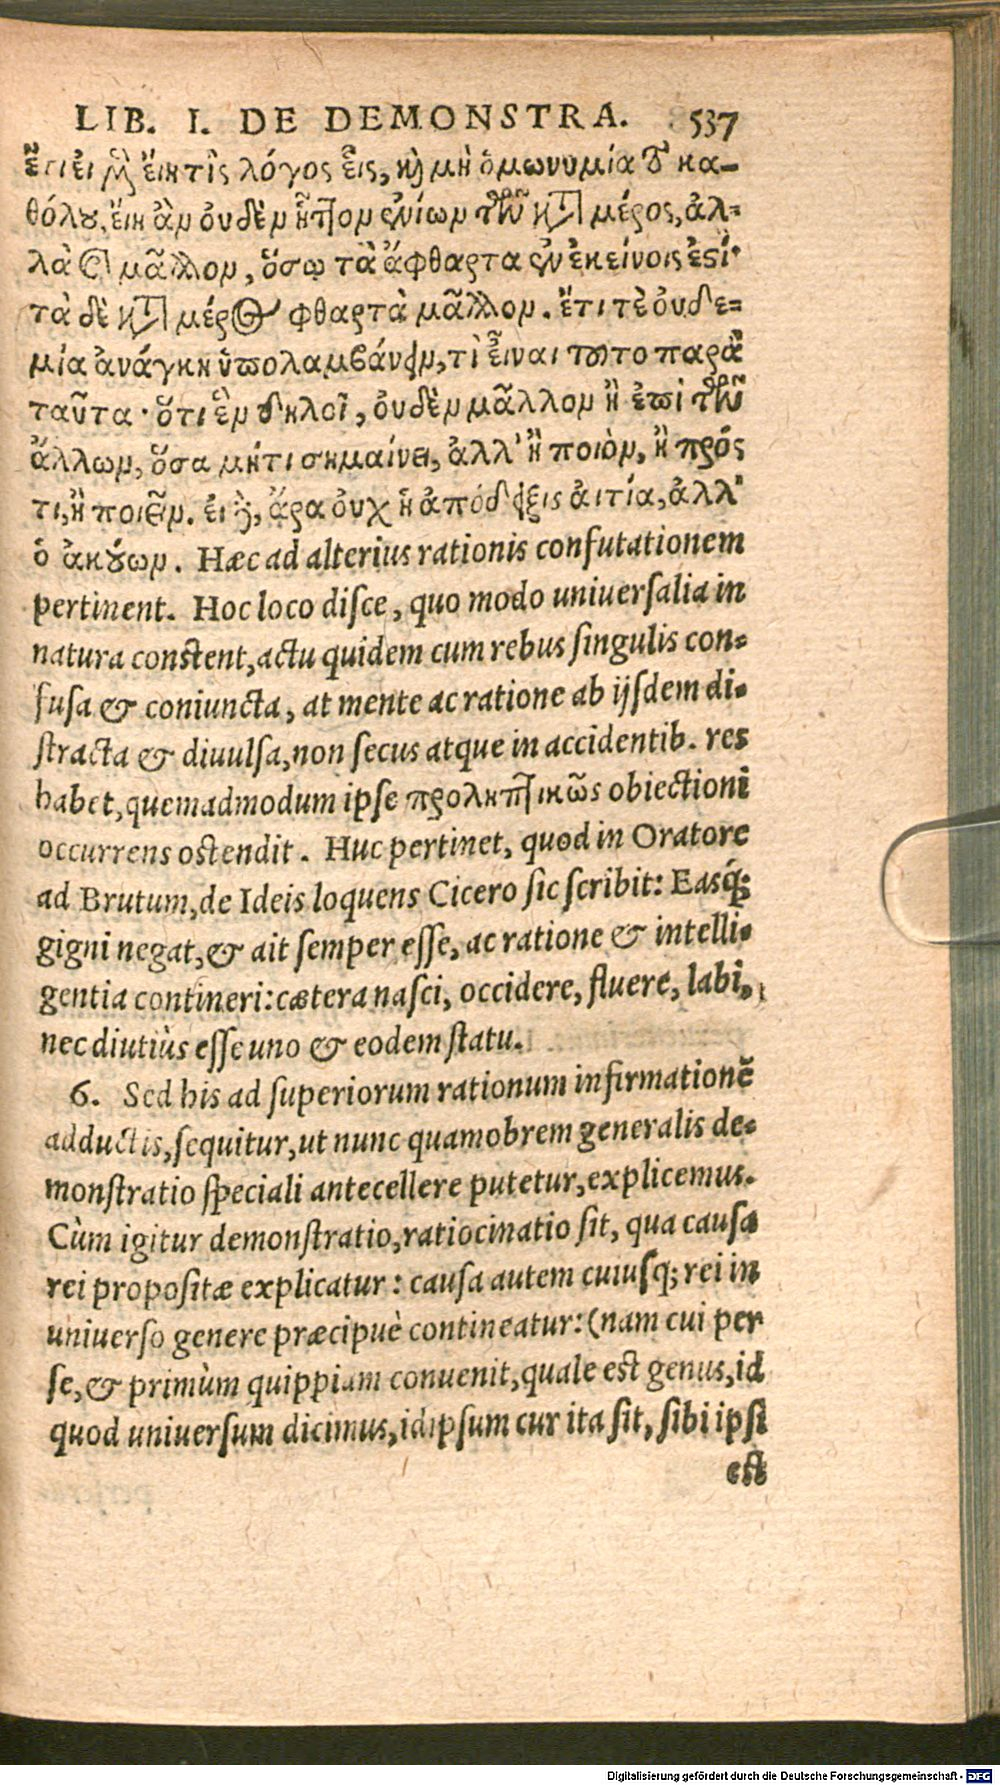 LIB. I. DE DEMONSTRA. 537
ἔτι εἰ μὲν εἴη τὶς λόγος εἷς, καὶ μὴ ὁμωνυμία τὸ κα-
θόλου, εἴη ἂν οὐδὲν ἧττον ἐνίων τῶν κατὰ μέρος, ἀλ-
λὰ καὶ μᾶλλον, ὅσῳ τὰ ἄφθαρτα ἐν ἐκείνοις ἐστί·
τὰ δὲ κατὰ μέρος φθαρτὰ μᾶλλον. ἔτι τὲ οὐδε-
μία ἀνάγκη ὑπολαμβάνειν, τὶ εἶναι τοῦτο παρὰ
ταῦτα· ὅτι ἓν δηλοῖ, οὐδὲν μᾶλλον ἢ ἐπὶ τῶν
ἄλλων, ὅσα μή τι σημαίνει, ἀλλ' ἢ ποιὸν, ἢ πρός
τι, ἢ ποιεῖν. εἰ δὲ, ἄρα οὐχ ἡ ἀπόδειξις αἰτία, ἀλλ'
ὁ ἀκούων. Hæc ad alterius rationis confutationem
pertinent. Hoc loco disce, quo modo uniuersalia in
natura constent, actu quidem cum rebus singulis con-
fusa & coniuncta, at mente ac ratione ab ijsdem di-
stracta & diuulsa, non secus atque in accidentib. res
habet, quemadmodum ipse προληπτικῶς obiectioni
occurrens ostendit. Huc pertinet, quod in Oratore
ad Brutum, de Ideis loquens Cicero sic scribit: Easq́;
gigni negat, & ait semper esse, ac ratione & intelli-
gentia contineri: cætera nasci, occidere, fluere, labi,
nec diutiùs esse uno & eodem statu.
6. Sed his ad superiorum rationum infirmationē
adductis, sequitur, ut nunc quamobrem generalis de-
monstratio speciali antecellere putetur, explicemus.
Cùm igitur demonstratio, ratiocinatio sit, qua causa
rei propositæ explicatur: causa autem cuiusq; rei in
uniuerso genere præcipuè contineatur: (nam cui per
se, & primùm quippiam conuenit, quale est genus, id
quod uniuersum dicimus, idipsum cur ita sit, sibi ipsi
est
Digitalisierung gefördert durch die Deutsche Forschungsgemeinschaft - DFG